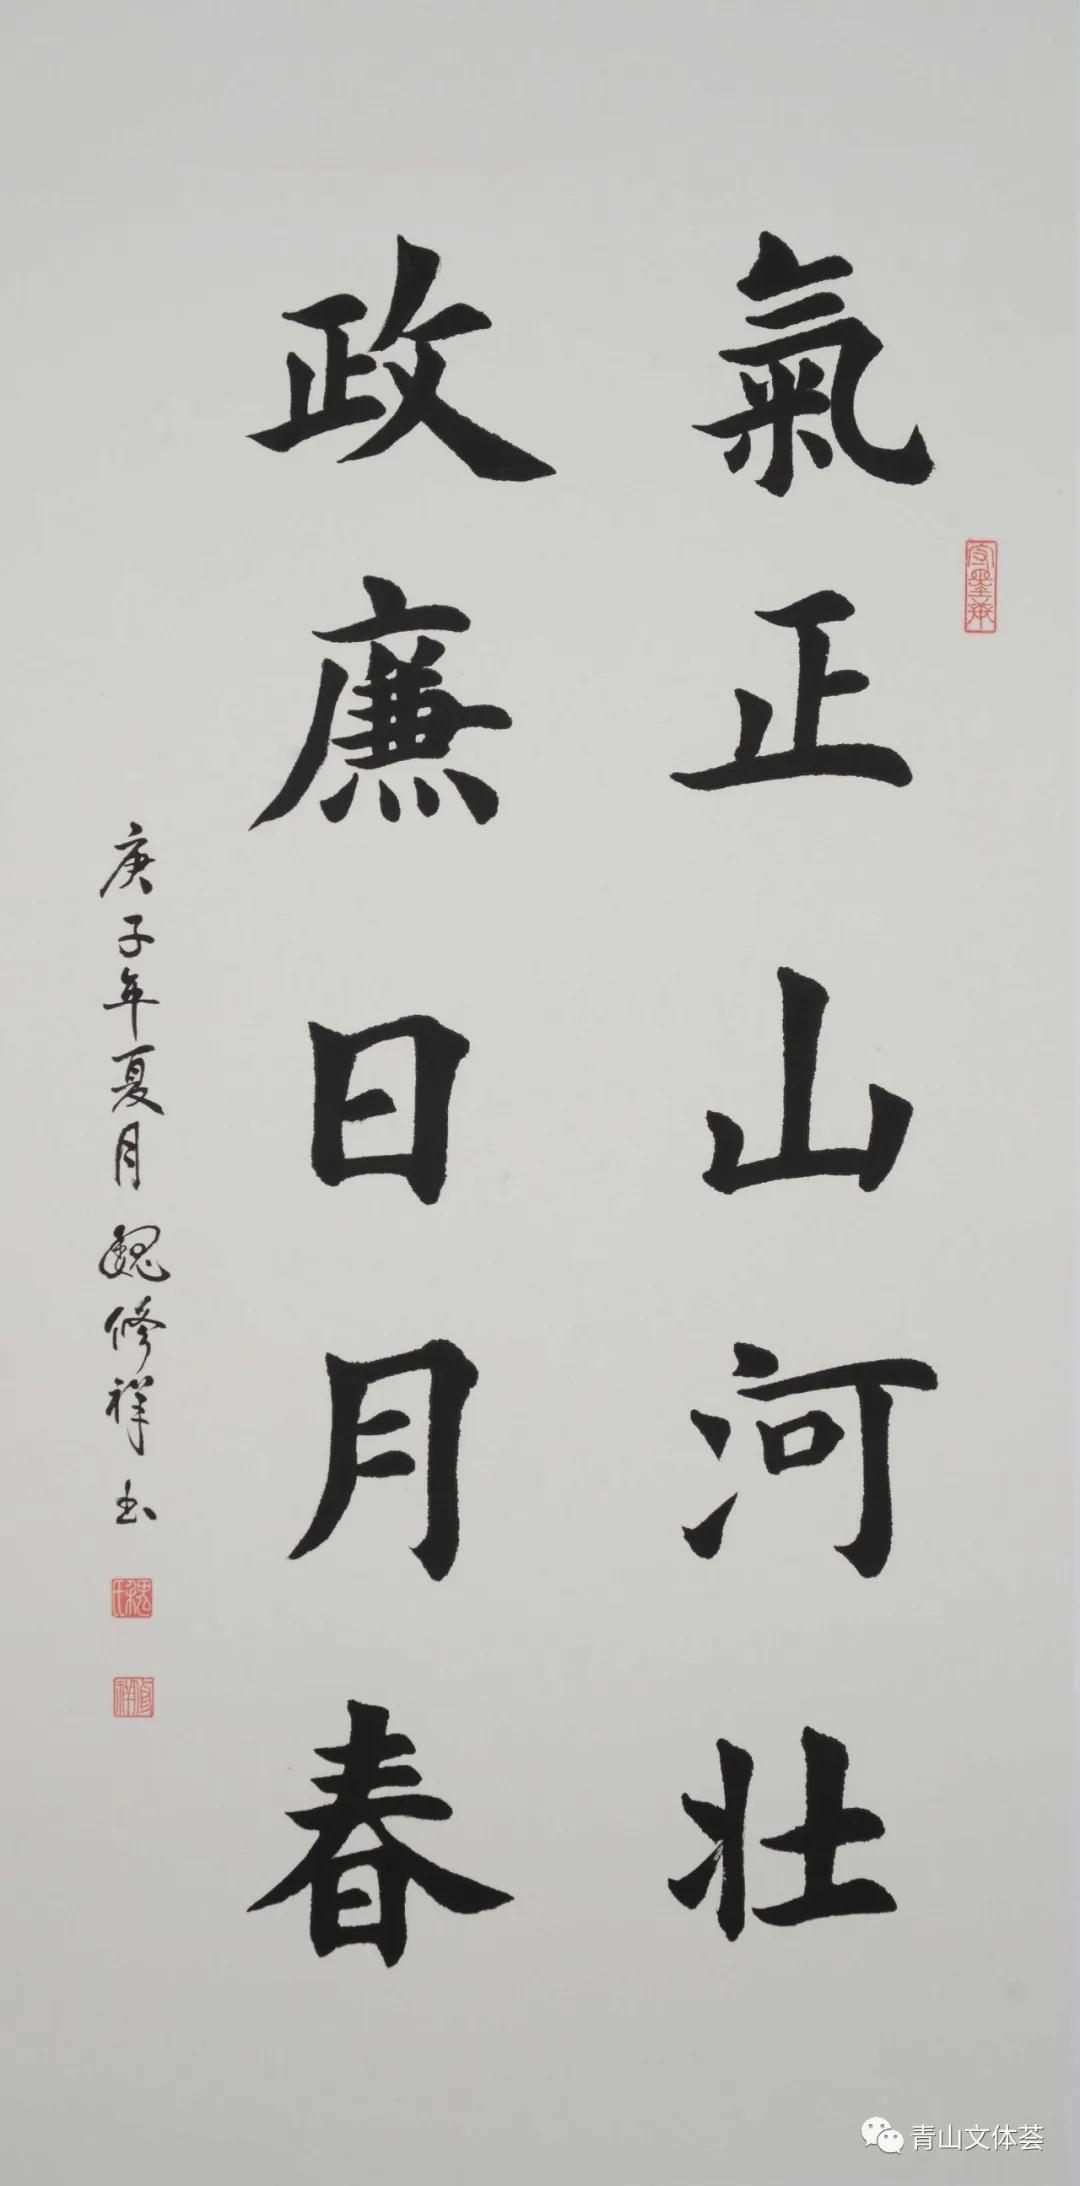 氣正山河壯
政廉日月春
庚子年夏月魏修祥书
魏氏
修祥
青山文体荟